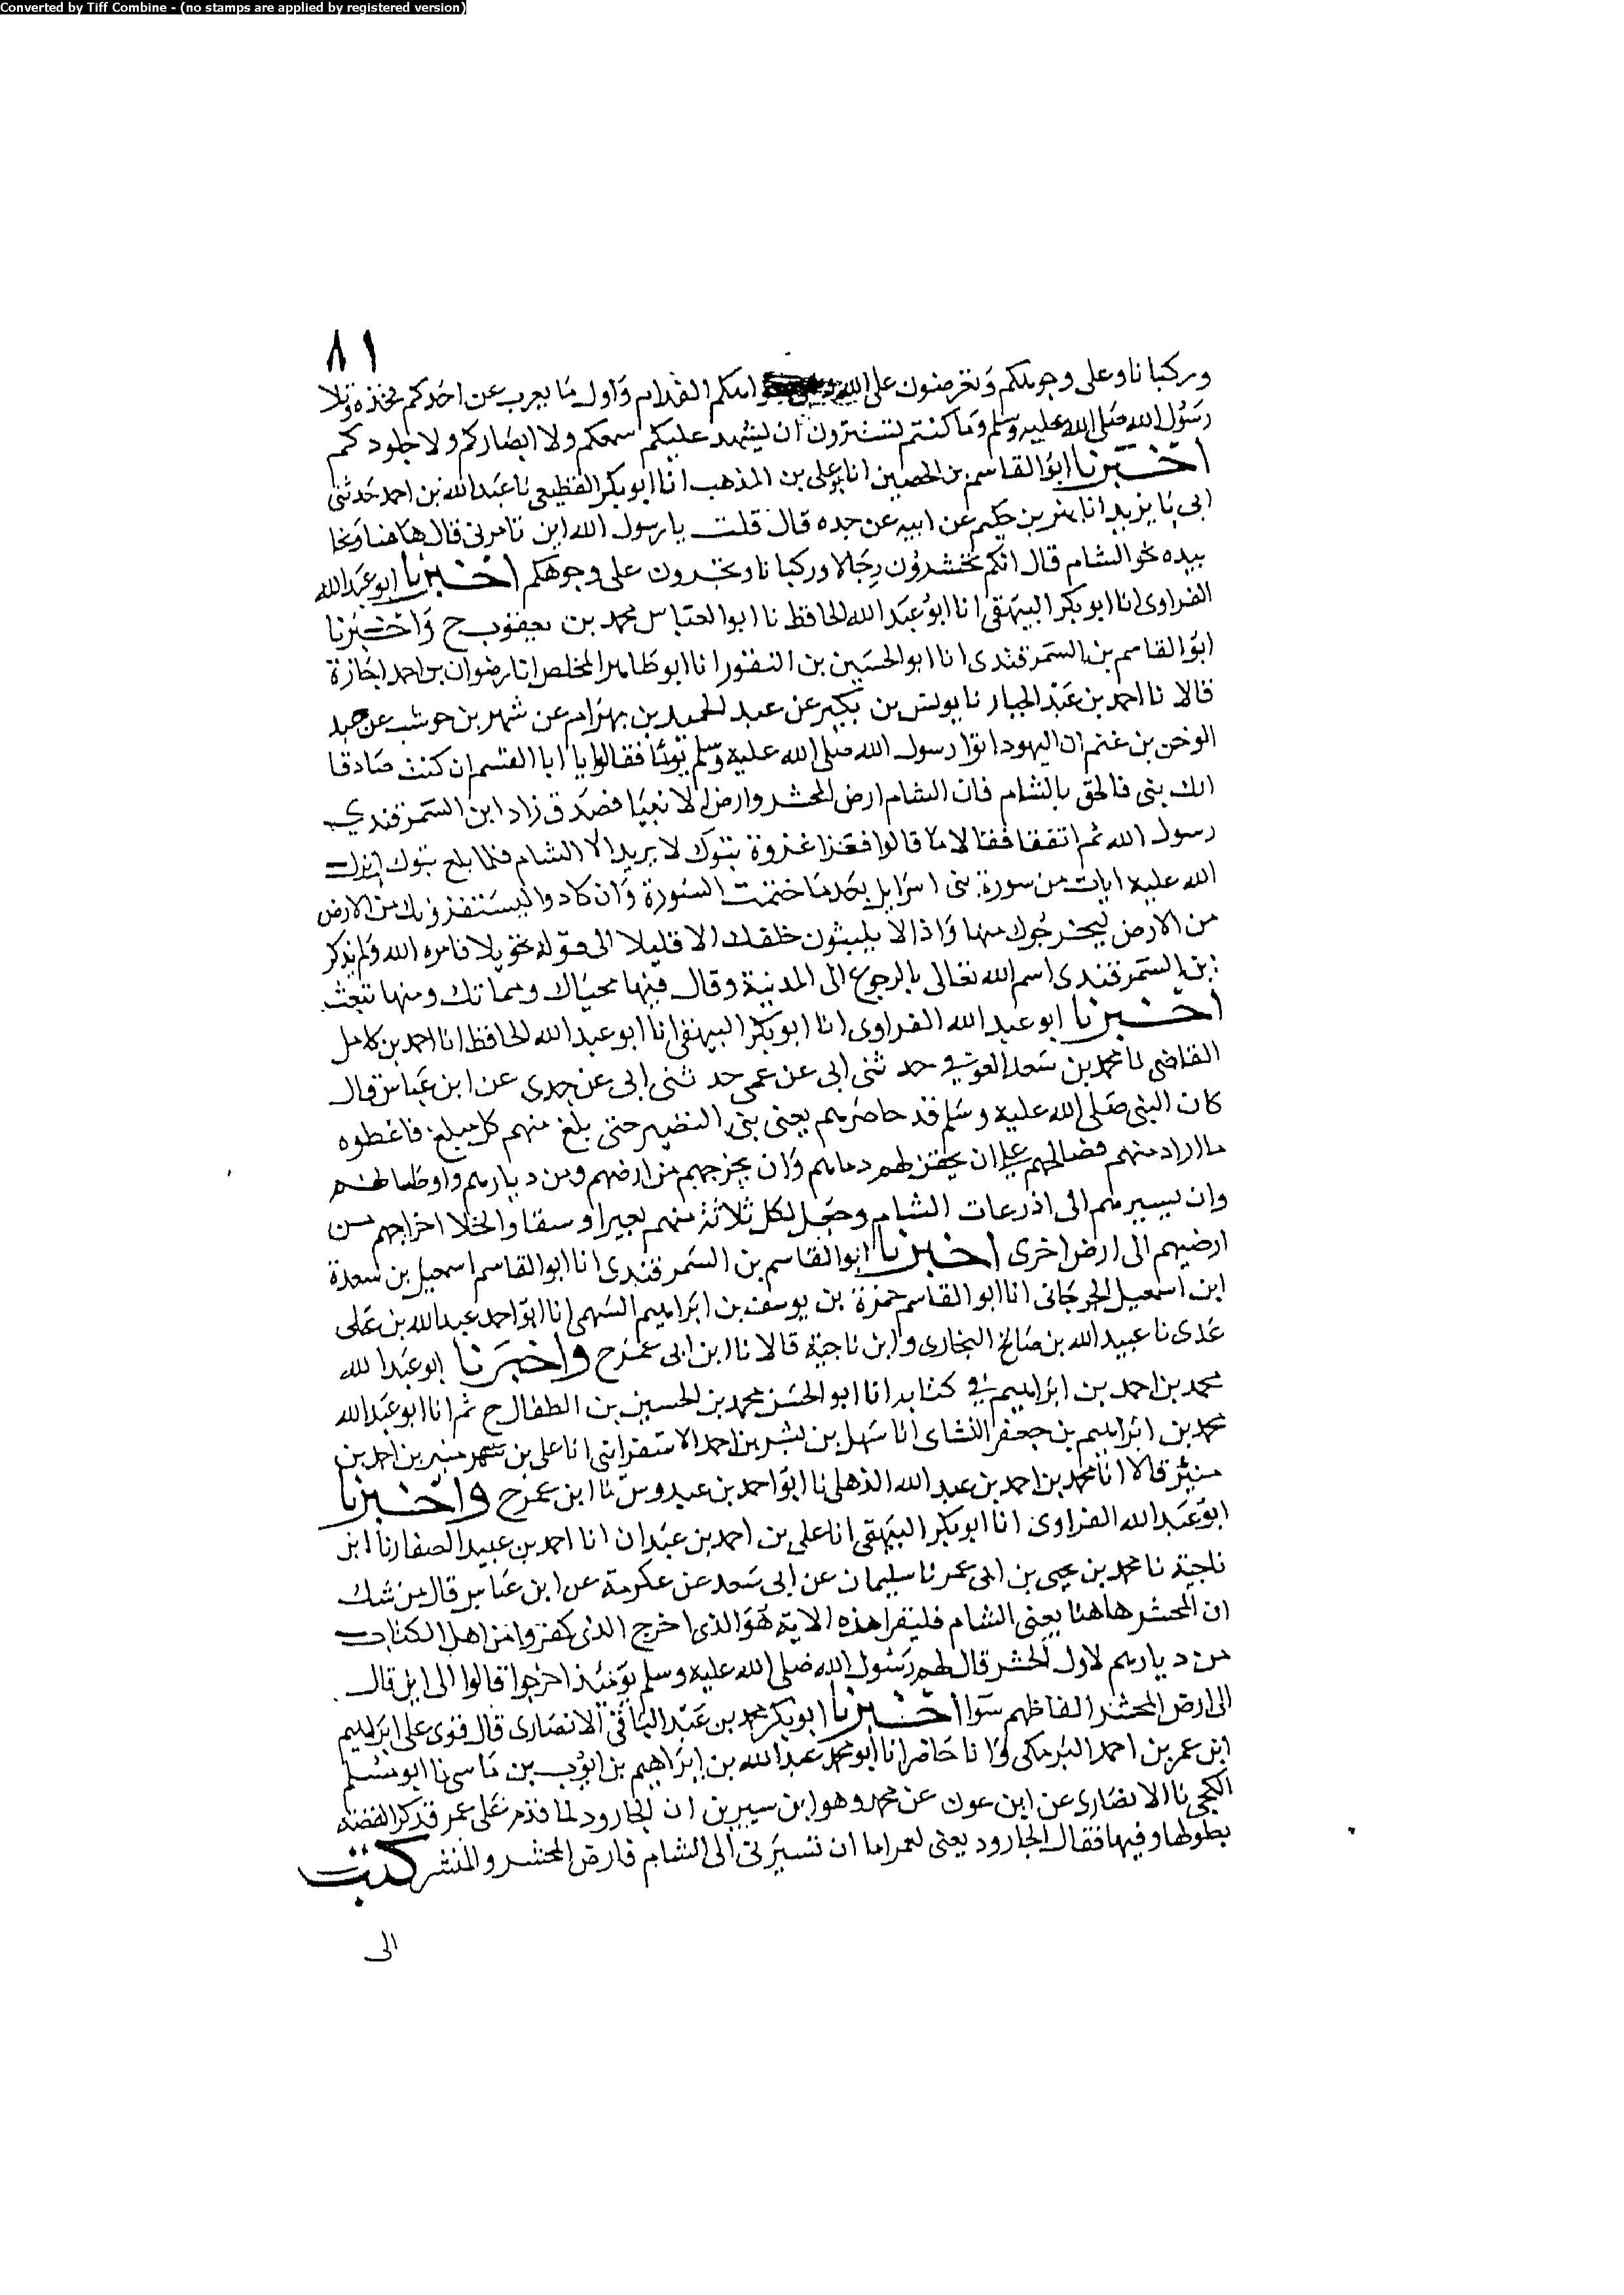 Converted by Tiff Combine - (no stamps are applied by registered version)
٨١
وركبانا وعلى وجوهكم وتعرضون على الله افواهكم الفدام واول ما يعرب عن احدكم فخذه وتلا
رسول الله صلى الله عليه وسلم وما كنتم تستترون ان يشهد عليكم سمعكم ولا ابصاركم ولا جلودكم
اخبرنا ابو القاسم بن الحصين انا ابو على بن المذهب انا ابو بكر القطيعى نا عبد الله بن احمد حدثنى
ابى نا يزيد انا بهز بن حكيم عن ابيه عن جده قال قلت يا رسول الله اين تامرنى قال هاهنا ونحا
بيده نحو الشام قال انكم تحشرون رجالا وركبانا وتجرون على وجوهكم اخبرنا ابو عبد الله
الفراوى انا ابو بكر البيهقى انا ابو عبد الله الحافظ نا ابو العباس محمد بن يعقوب ح واخبرنا
ابو القاسم بن السمرقندى انا ابو الحسين بن النقور انا ابو طاهر المخلص انا رضوان بن احمد اجازة
قالا نا احمد بن عبد الجبار نا يونس بن بكير عن عبد الحميد بن بهرام عن شهر بن حوشب عن عبد
الرحمن بن غنم ان اليهود اتوا رسول الله صلى الله عليه وسلم يوما فقالوا يا ابا القسم ان كنت صادقا
انك نبى فالحق بالشام فان الشام ارض المحشر وارض الانبيا فصدق زاد ابن السمرقندي
رسول الله ثم اتفقا فقالا ما قالوا فغزا غزوة تبوك لا يريد الا الشام فلما بلغ تبوك انزل
الله عليه ايات من سورة بنى اسرايل بعد ما ختمت السورة وان كادوا ليستفزونك من الارض
من الارض ليخرجوك منها واذا لا يلبثون خلفك الا قليلا الى قوله تحويلا فامره الله ولم يذكر
ابن السمرقندى اسم الله تعالى بالرجوع الى المدينة وقال فيها محياك ومماتك ومنها تبعث
اخبرنا ابو عبد الله الفراوى انا ابو بكر البيهقى انا ابو عبد الله الحافظ انا احمد بن كامل
القاضى نا محمد بن سعد العوفي حدثنى ابى عن عمى حدثنى ابى عن جدى عن ابن عباس قال
كان النبى صلى الله عليه وسلم قد حاصرهم يعنى بنى النضير حتى بلغ منهم كل مبلغ فاعطوه
ما اراد منهم فصالحهم على ان يحقن لهم دماهم وان يخرجهم من ارضهم ومن ديارهم واوطانهم
وان يسيرهم الى اذرعات الشام وجعل لكل ثلاثة منهم بعيرا وسقا والجلا اخراجهم من
ارضهم الى ارض اخرى اخبرنا ابو القاسم بن السمرقندى انا ابو القاسم اسمعيل بن مسعدة
ابن اسمعيل الجرجانى انا ابو القاسم حمزة بن يوسف بن ابراهيم السهمى انا ابو احمد عبد الله بن على
عدى نا عبيد الله بن صالح البخارى وابن ناجية قالا نا ابن ابى عمر ح واخبرنا ابو عبد الله
محمد بن احمد بن ابراهيم في كتابه انا ابو الحسن محمد بن الحسين بن الطفال ح ثم انا ابو عبد الله
محمد بن ابراهيم بن جعفر النشاى انا سهل بن بشر بن احمد الاسفراينى انا على بن منير بن احمد بن
منير قالا انا محمد بن احمد بن عبد الله الذهلى نا ابو احمد بن عبدوس نا ابن عمر ح واخبرنا
ابو عبد الله الفراوى انا ابو بكر البيهقى انا على بن احمد بن عبدان انا احمد بن عبيد الصفار نا ابن
ناجية نا محمد بن يحيى بن ابى عمر نا سليمان عن ابى سعد عن عكرمة عن ابن عباس قال من شك
ان المحشر هاهنا يعنى الشام فليقرا هذه الاية هو الذى اخرج الذى كفروا من اهل الكتاب
من ديارهم لاول الحشر قال لهم رسول الله صلى الله عليه وسلم يومئذ اخرجوا قالوا الى اين قال
الى ارض المحشر الفاظهم سوا اخبرنا ابو بكر محمد بن عبد الباقى الانصارى قال قرى على ابراهيم
ابن عمر بن احمد البرمكى وانا حاضر انا ابو محمد عبد الله بن ابراهيم بن ايوب بن ماسى نا ابو مسلم
الكجى نا الانصارى عن ابن عون عن محمد وهو ابن سيرين ان الجارود لما قدم على عمر فذكر القصة
بطولها وفيها فقال الجارود يعنى لعمر اما ان تسيرنى الى الشام فارض المحشر والمنشر كتب
الى